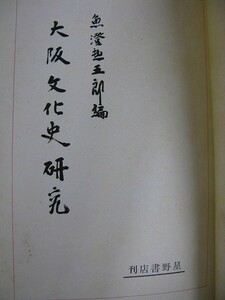 魚澄惣五郎編
大阪文化史研究
星野書店刊